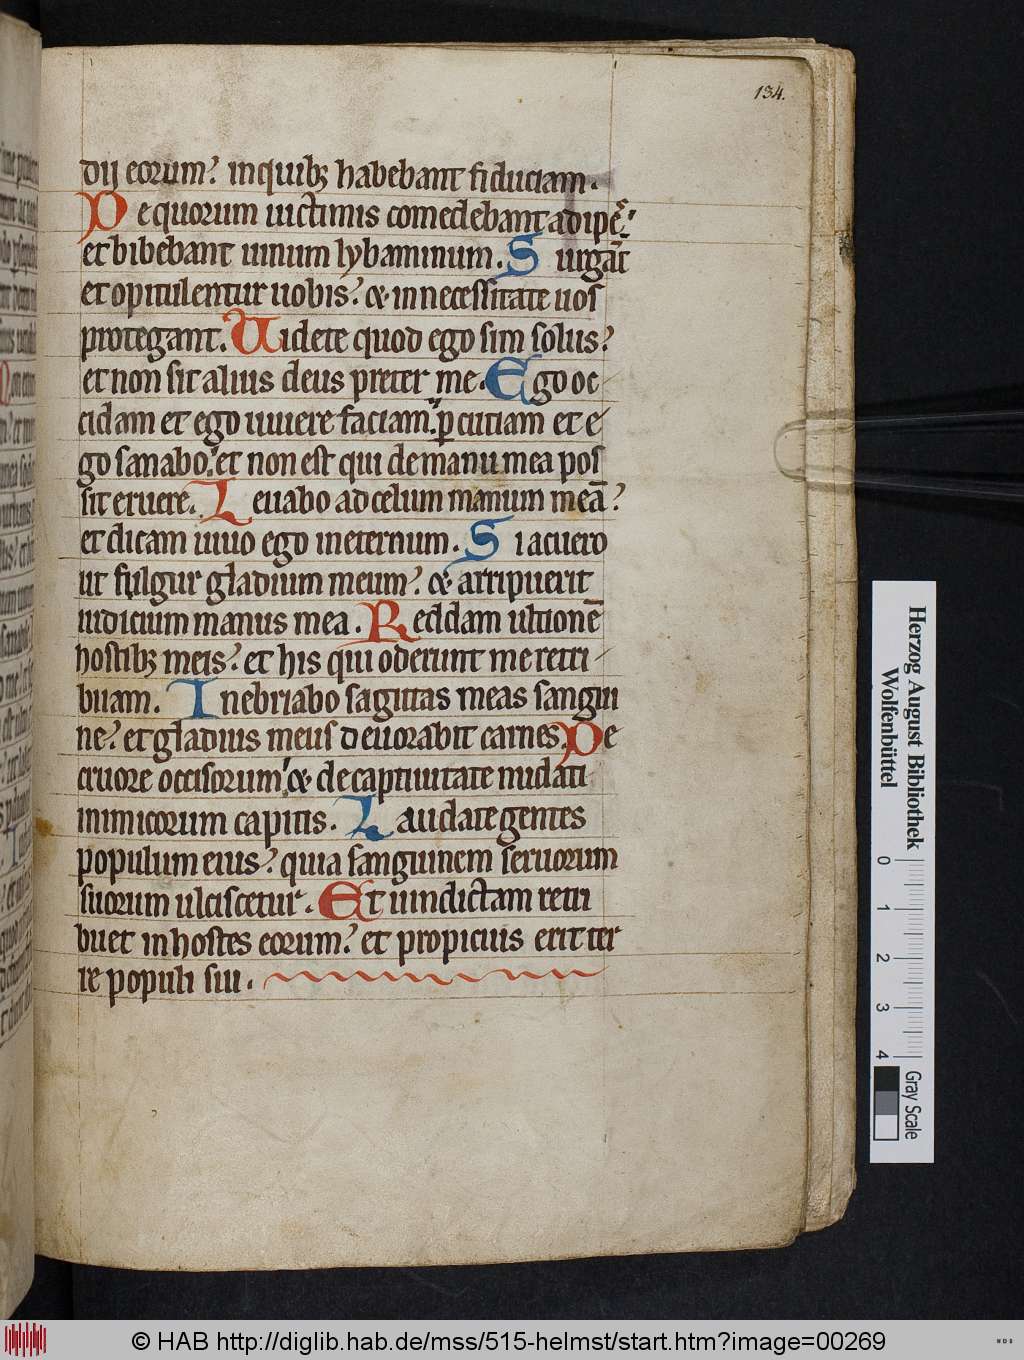 134.
dij eorum? in quibꝫ habebant fiduciam.
De quorum uictimis comedebant adipē:
et bibebant uinum lybaminum. Surgāt
et opitulentur uobis? & in necessitate uos
protegant. Uidete quod ego sim solus?
et non sit alius deus preter me. Ego oc
cidam et ego uiuere faciam. ꝑcutiam et e
go sanabo. et non est qui de manu mea pos
sit eruere. Leuabo ad celum manum meā?
et dicam uiuo ego in eternum. Si acuero
ut fulgur gladium meum? & arripuerit
iudicium manus mea. Reddam ultionē
hostibꝫ meis? et his qui oderunt me retri-
buam. Inebriabo sagittas meas sangui
ne? et gladius meus deuorabit carnes. De
cruore occisorum. & de captiuitate nudati
inimicorum capitis. Laudate gentes
populum eius? quia sanguinem seruorum
suorum ulciscetur. Et uindictam retri
buet in hostes eorum? et propicius erit ter
re populi sui.
Herzog August Bibliothek
Wolfenbüttel
0 1 2 3 4
Gray Scale
© HAB http://diglib.hab.de/mss/515-helmst/start.htm?image=00269